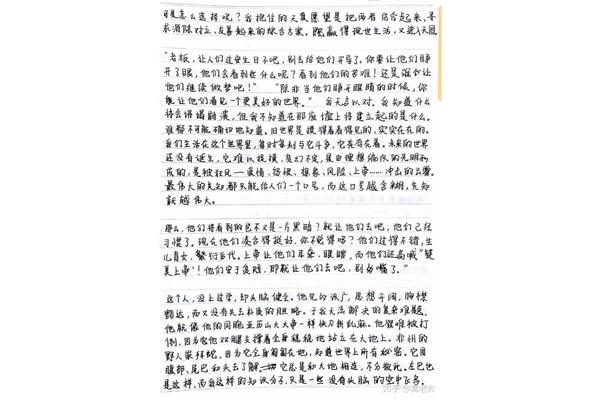 可是怎么选择呢？我抱住的天真愿望是把两者结合起来，寻
求消除对立、友善起来的综合方案。既赢得现世生活，又进入天国
"老板，让人们过安生日子吧，别去给他们开导了。你要让他们睁
开了眼，他们会看到些什么呢？看到他们的苦难！还是让
他们继续做梦吧！" "除非当他们睁开眼睛的时候，你
能让他们看见一个更美好的世界。" 我无言以对。我知道什么
将会垮塌崩溃，但我不知道在那废墟上将建立起的是什么。
谁都不可能确切地知道。旧世界是摸得着看得见的，实实在在的。
我们生活在这个世界里，每时每刻与它斗争，它是存在着。未来的世界
还没有诞生，它难以捉摸，变幻不定，是由理想编织的光明形
成的，是被狂风——爱情、仇恨、想象、风险、上帝……冲击的云雾。
最伟大的先知都只能给人们一个口号，而这口号越含糊，先知
就越伟大。
那么，他们将看到的岂不又是一片黑暗？就让他们去吧，他们已经
习惯了。现在他们凑合得挺好，你不觉得吗？他们过得不错，生
儿育女，繁衍后代。上帝让他们耳聋、眼瞎，而他们还高喊"赞
美上帝"！他们安于贫贱，那就让他们去吧，别多嘴了。"
这个人，没上过学，却头脑健全。他见多识广，思想开阔，胸襟
豁达，而又没有失去朴质的胆略。于我无法解决的复杂难题，
他就像他的同胞亚历山大大帝一样快刀斩乱麻。他很难被打
倒，因为他双腿支撑着全身稳稳地站立在大地上。非洲的
野人崇拜蛇，因为它全身匍匐在地，知道世界上所有秘密。它用
腹部、尾巴和头去了解，它总是和大地相连，不分彼此。左巴也
是这样，而我这样的知识分子，只是一些没有头脑的空中飞鸟。
知乎